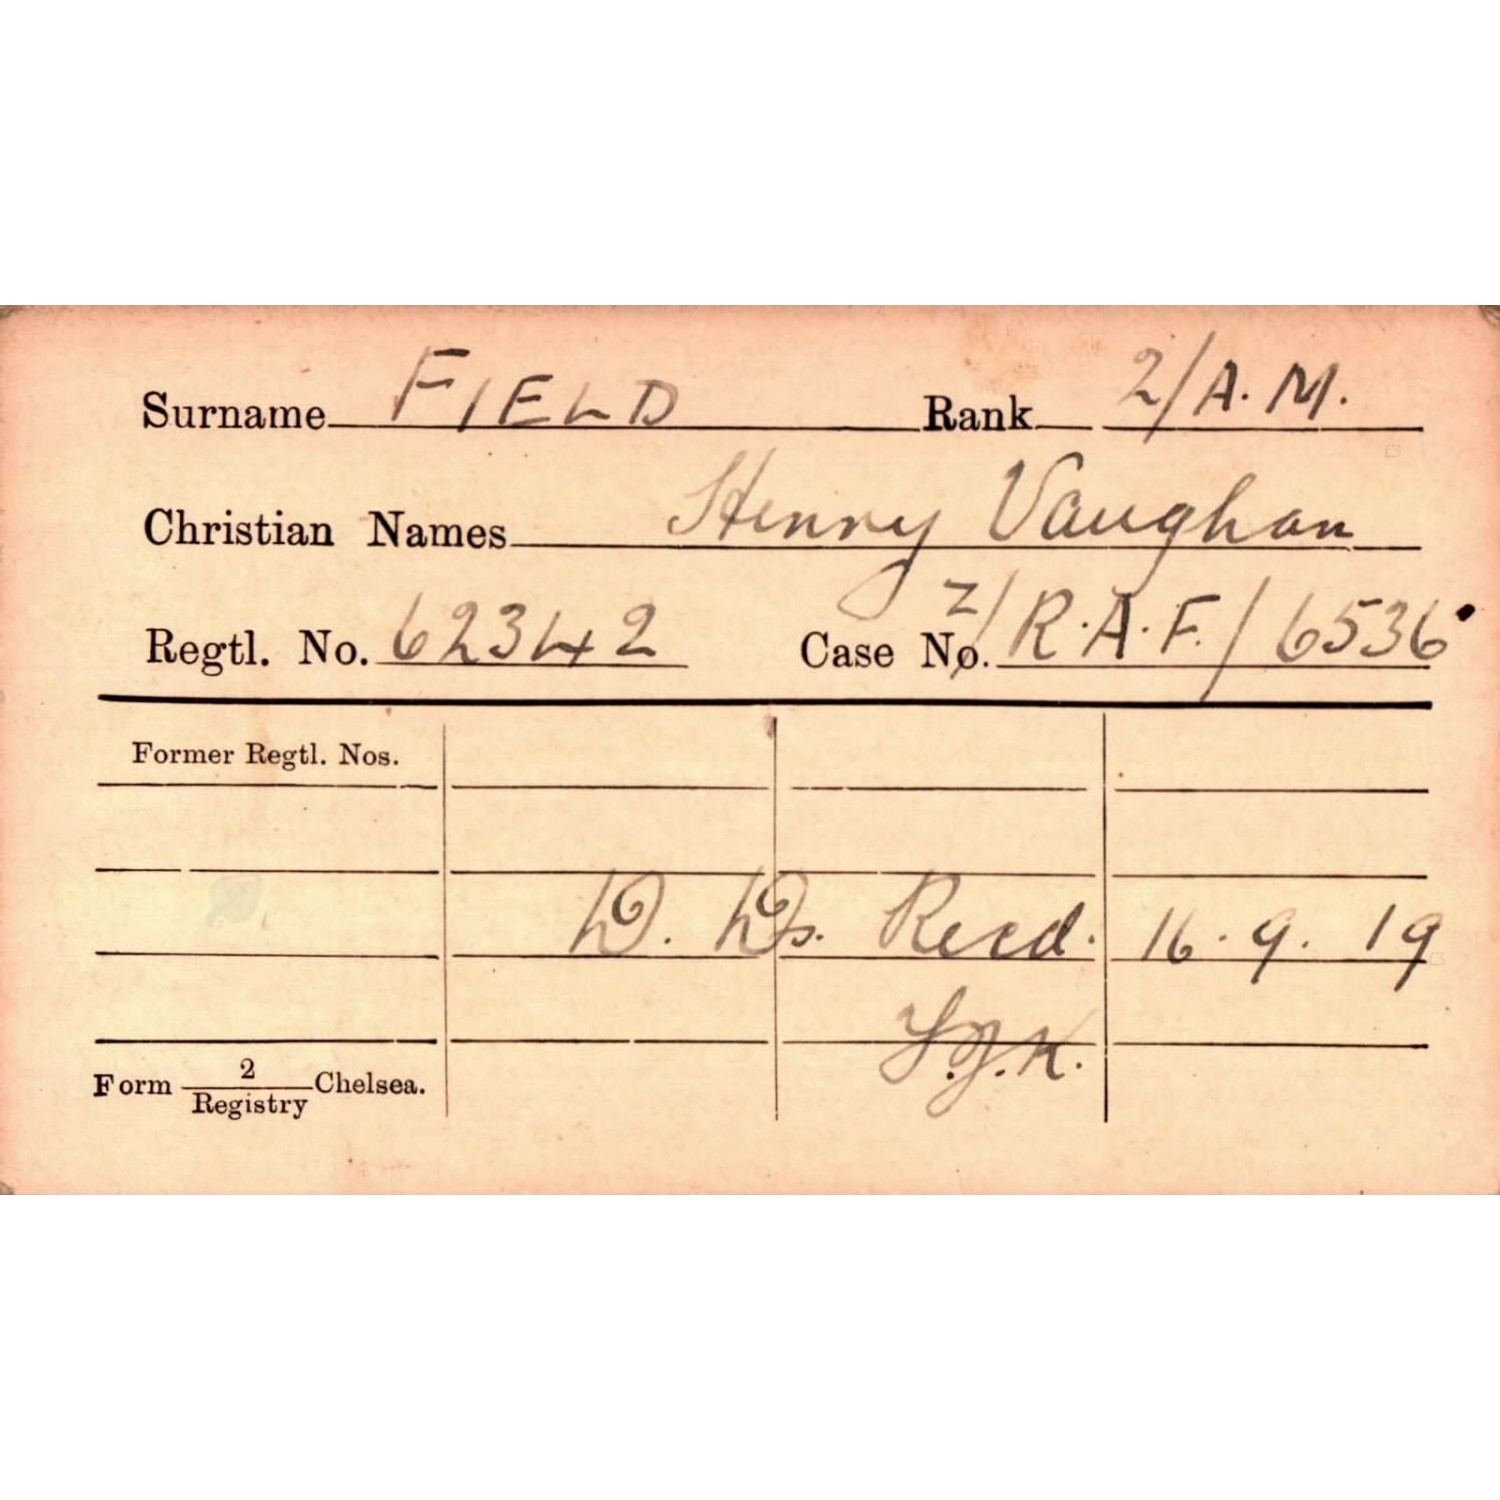 Surname FIELD Rank 2/A.M.
Christian Names Henry Vaughan
Regtl. No. 62342 Case No. Z/R.A.F./6536
Former Regtl. Nos.
D. Ds. Recd. 16.9.19
Form 2/Registry Chelsea.